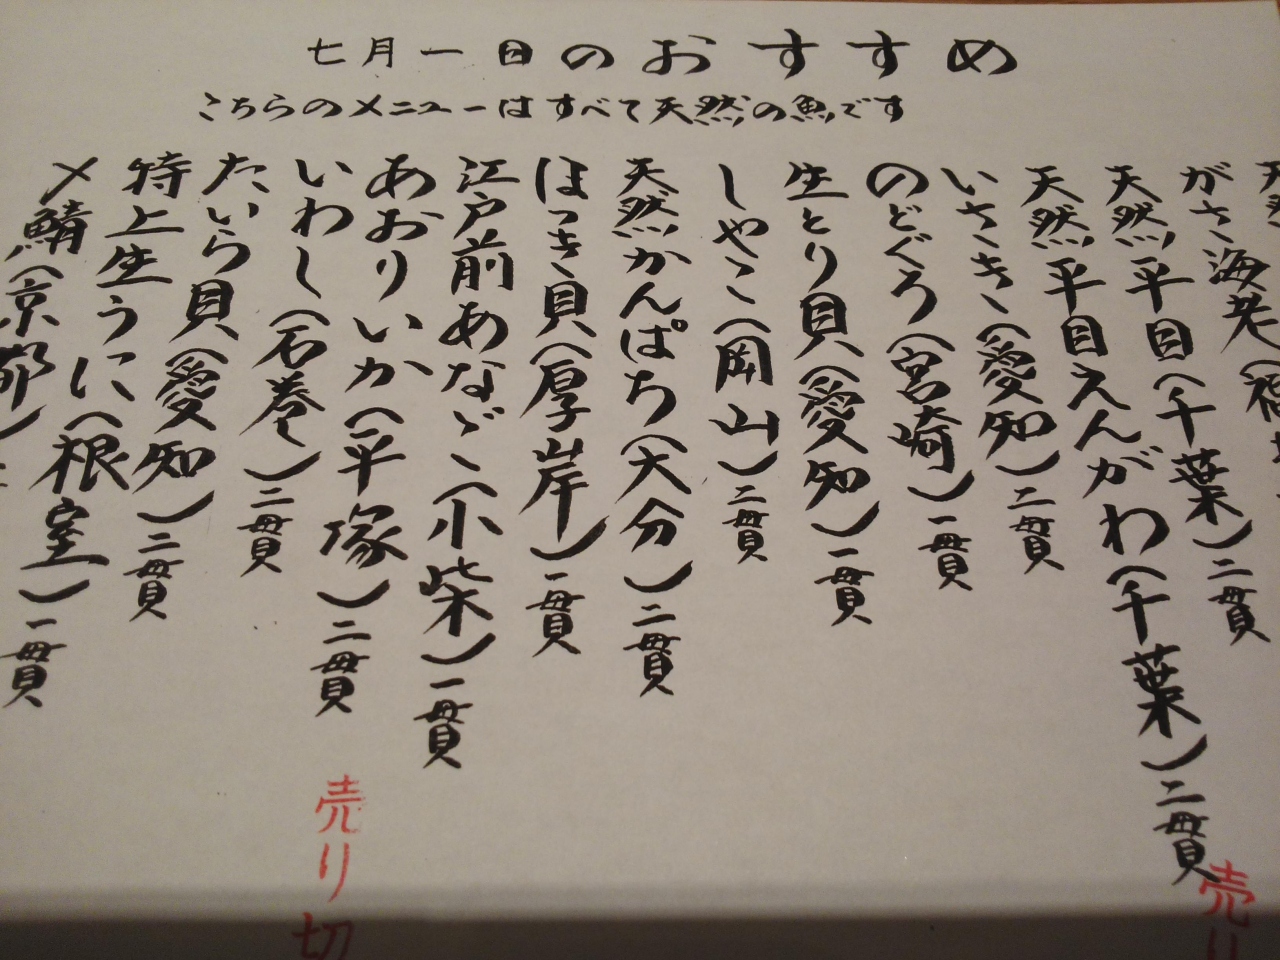 七月一日のおすすめ
こちらのメニューはすべて天然の魚です
がさ海老(福
天然平目(千葉)二貫
天然平目えんがわ(千葉)二貫
売り
いさき(愛知)二貫
のどぐろ(宮崎)一貫
生とり貝(愛知)一貫
しやこ(岡山)二貫
天然かんぱち(大分)二貫
ほっき貝(厚岸)一貫
江戸前あなご(小柴)一貫
あおりいか(平塚)二貫
売り切
いわし(石巻)二貫
たいら貝(愛知)二貫
特上生うに(根室)一貫
〆鯖(京都)